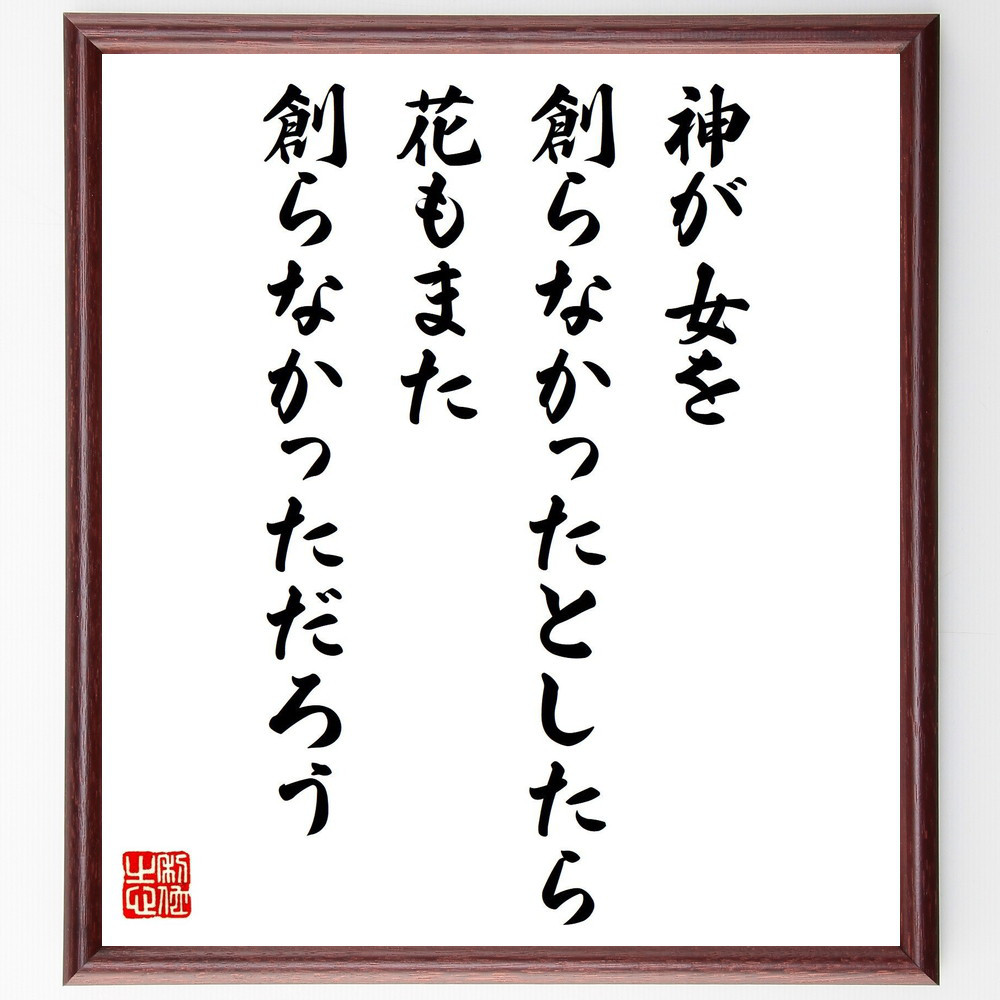 神が 女を
創らなかったとしたら
花もまた
創らなかっただろう